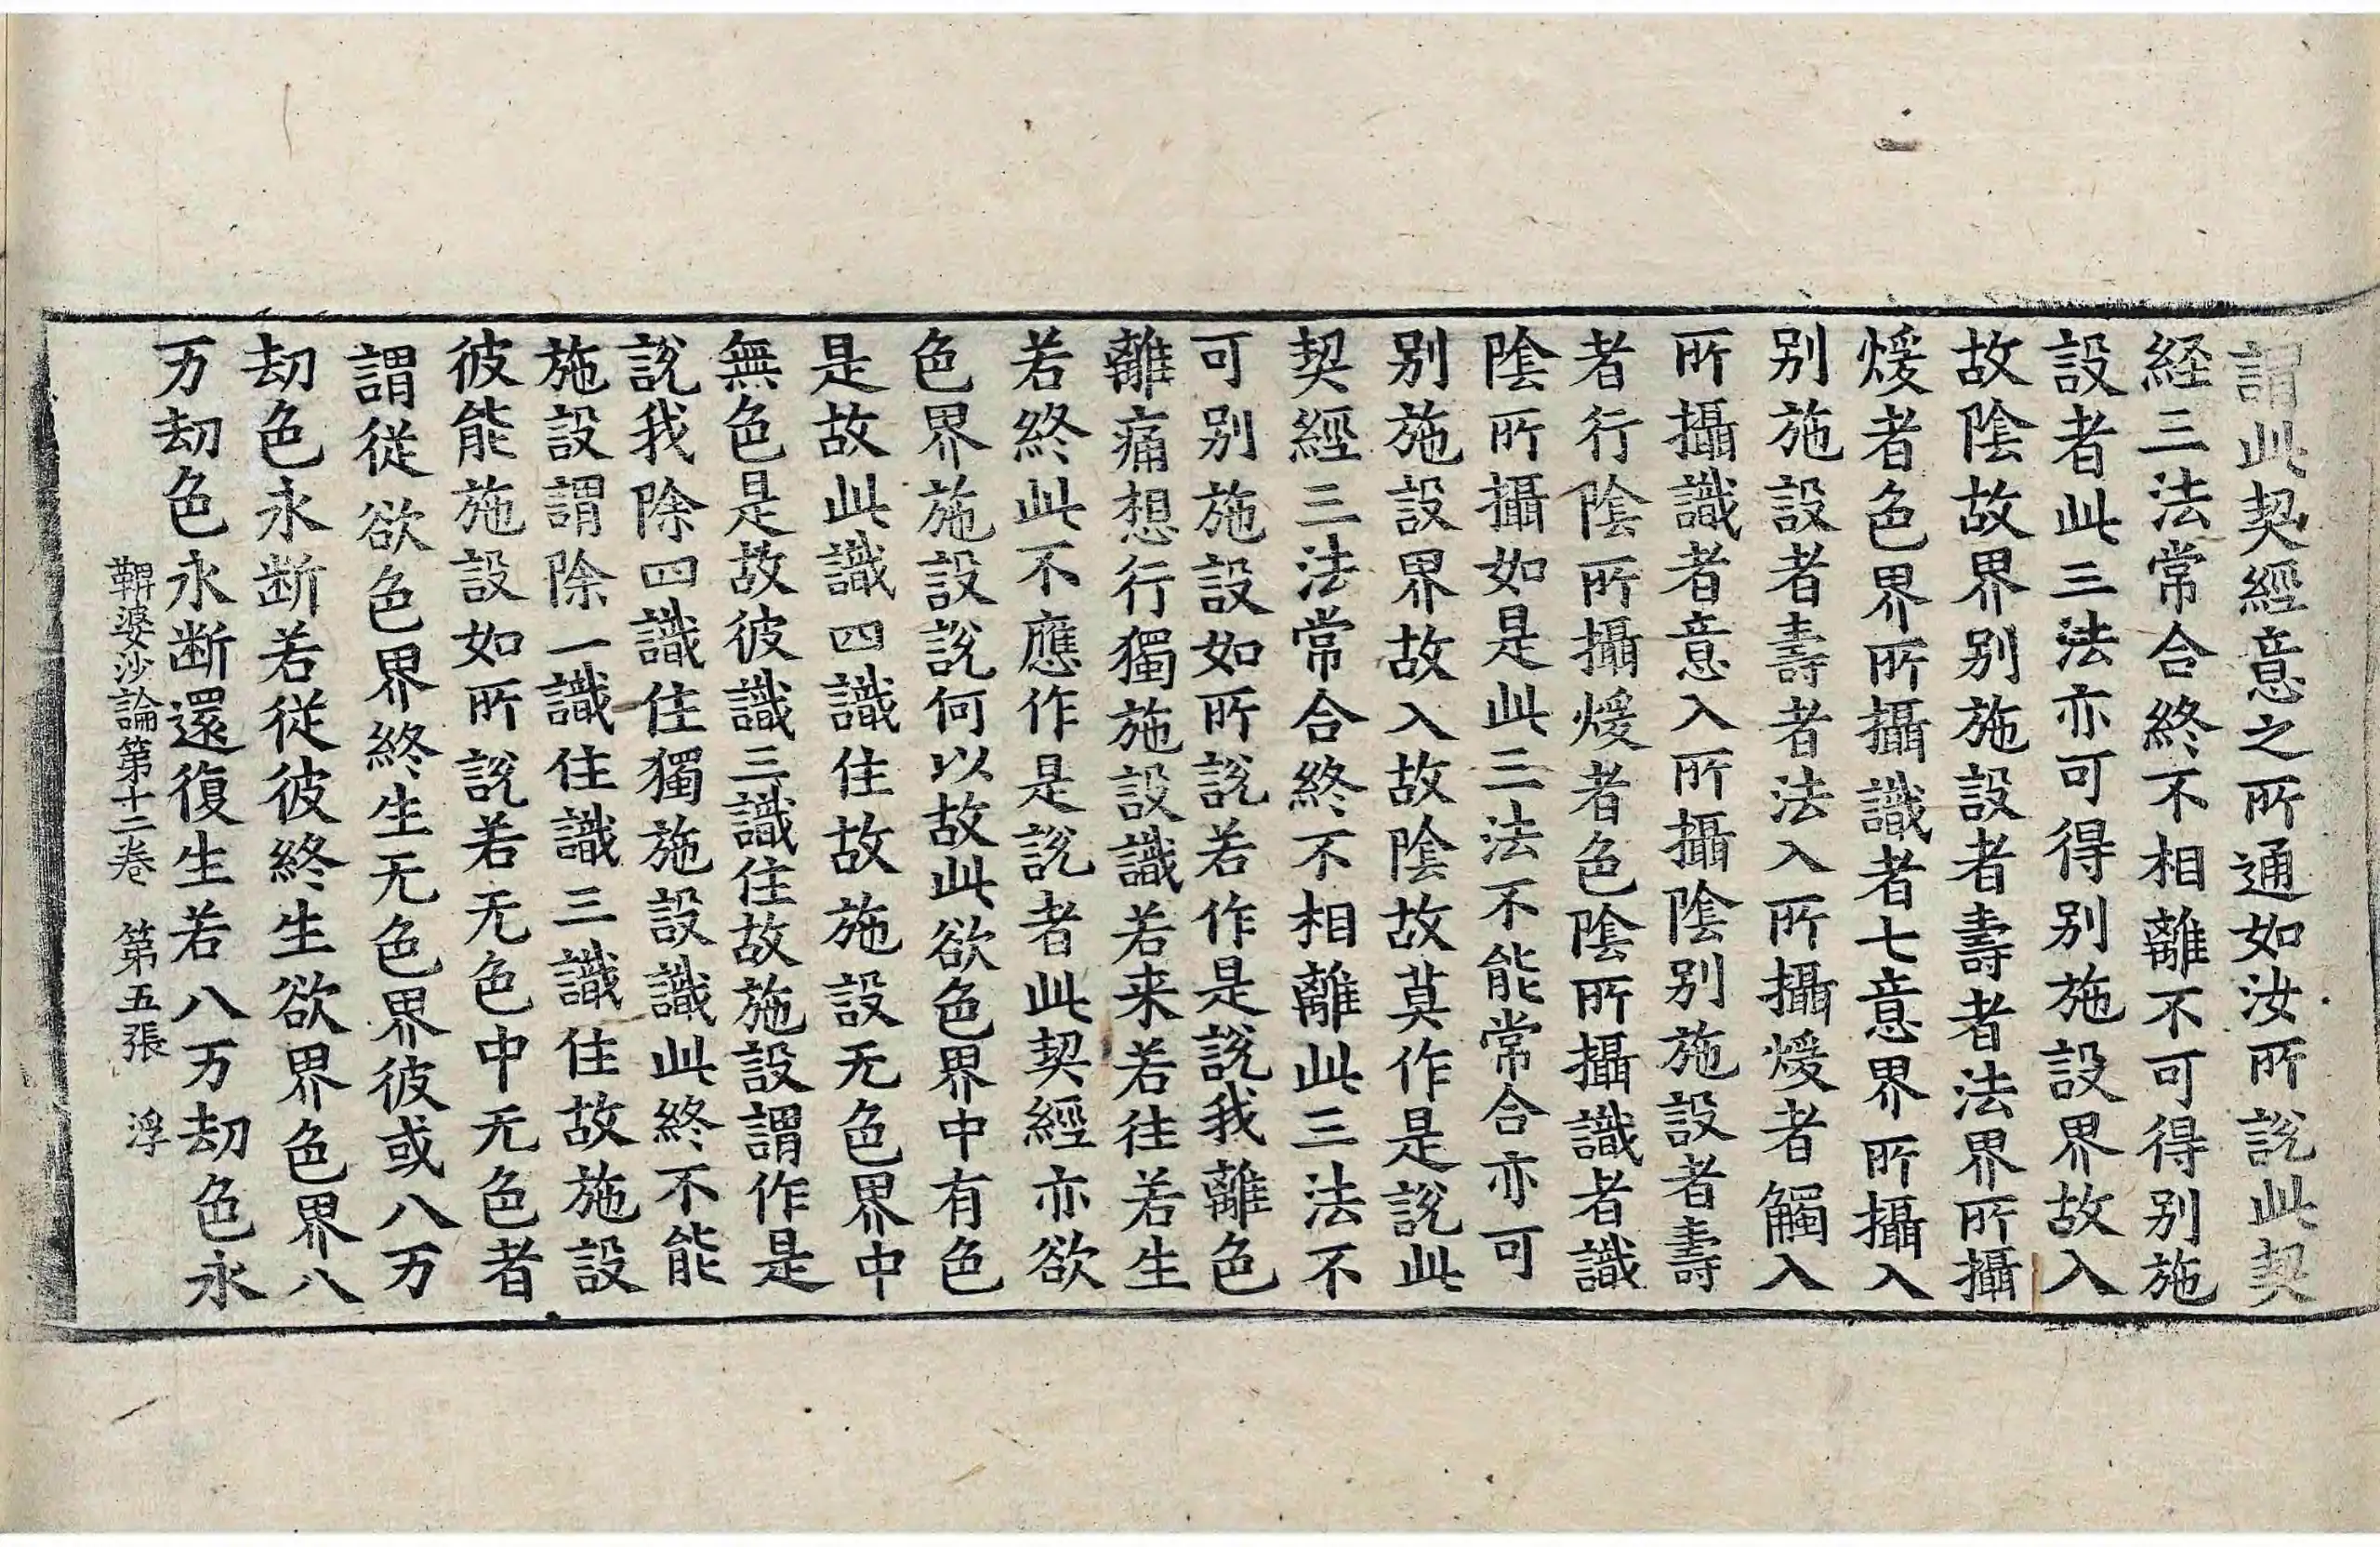 謂此契經意之所通如汝所說此契
経三法常合終不相離不可得别施
設者此三法亦可得别施設界故入
故陰故界别施設者壽者法界所攝
煖者色界所攝識者七意界所攝入
别施設者壽者法入所攝煖者觸入
所攝識者意入所攝陰别施設者壽
者行陰所攝煖者色陰所攝識者識
陰所攝如是此三法不能常合亦可
别施設界故入故陰故莫作是說此
契經三法常合終不相離此三法不
可别施設如所說若作是說我離色
離痛想行獨施設識若来若往若生
若終此不應作是說者此契經亦欲
色界施設說何以故此欲色界中有色
是故此識四識住故施設无色界中
無色是故彼識三識住故施設謂作是
說我除四識住獨施設識此終不能
施設謂除一識住識三識住故施設
彼能施設如所說若无色中无色者
謂從欲色界終生无色界彼或八万
劫色永断若從彼終生欲界色界八
万劫色永断還復生若八万劫色永
鞞婆沙論第十二卷　第五張　浮